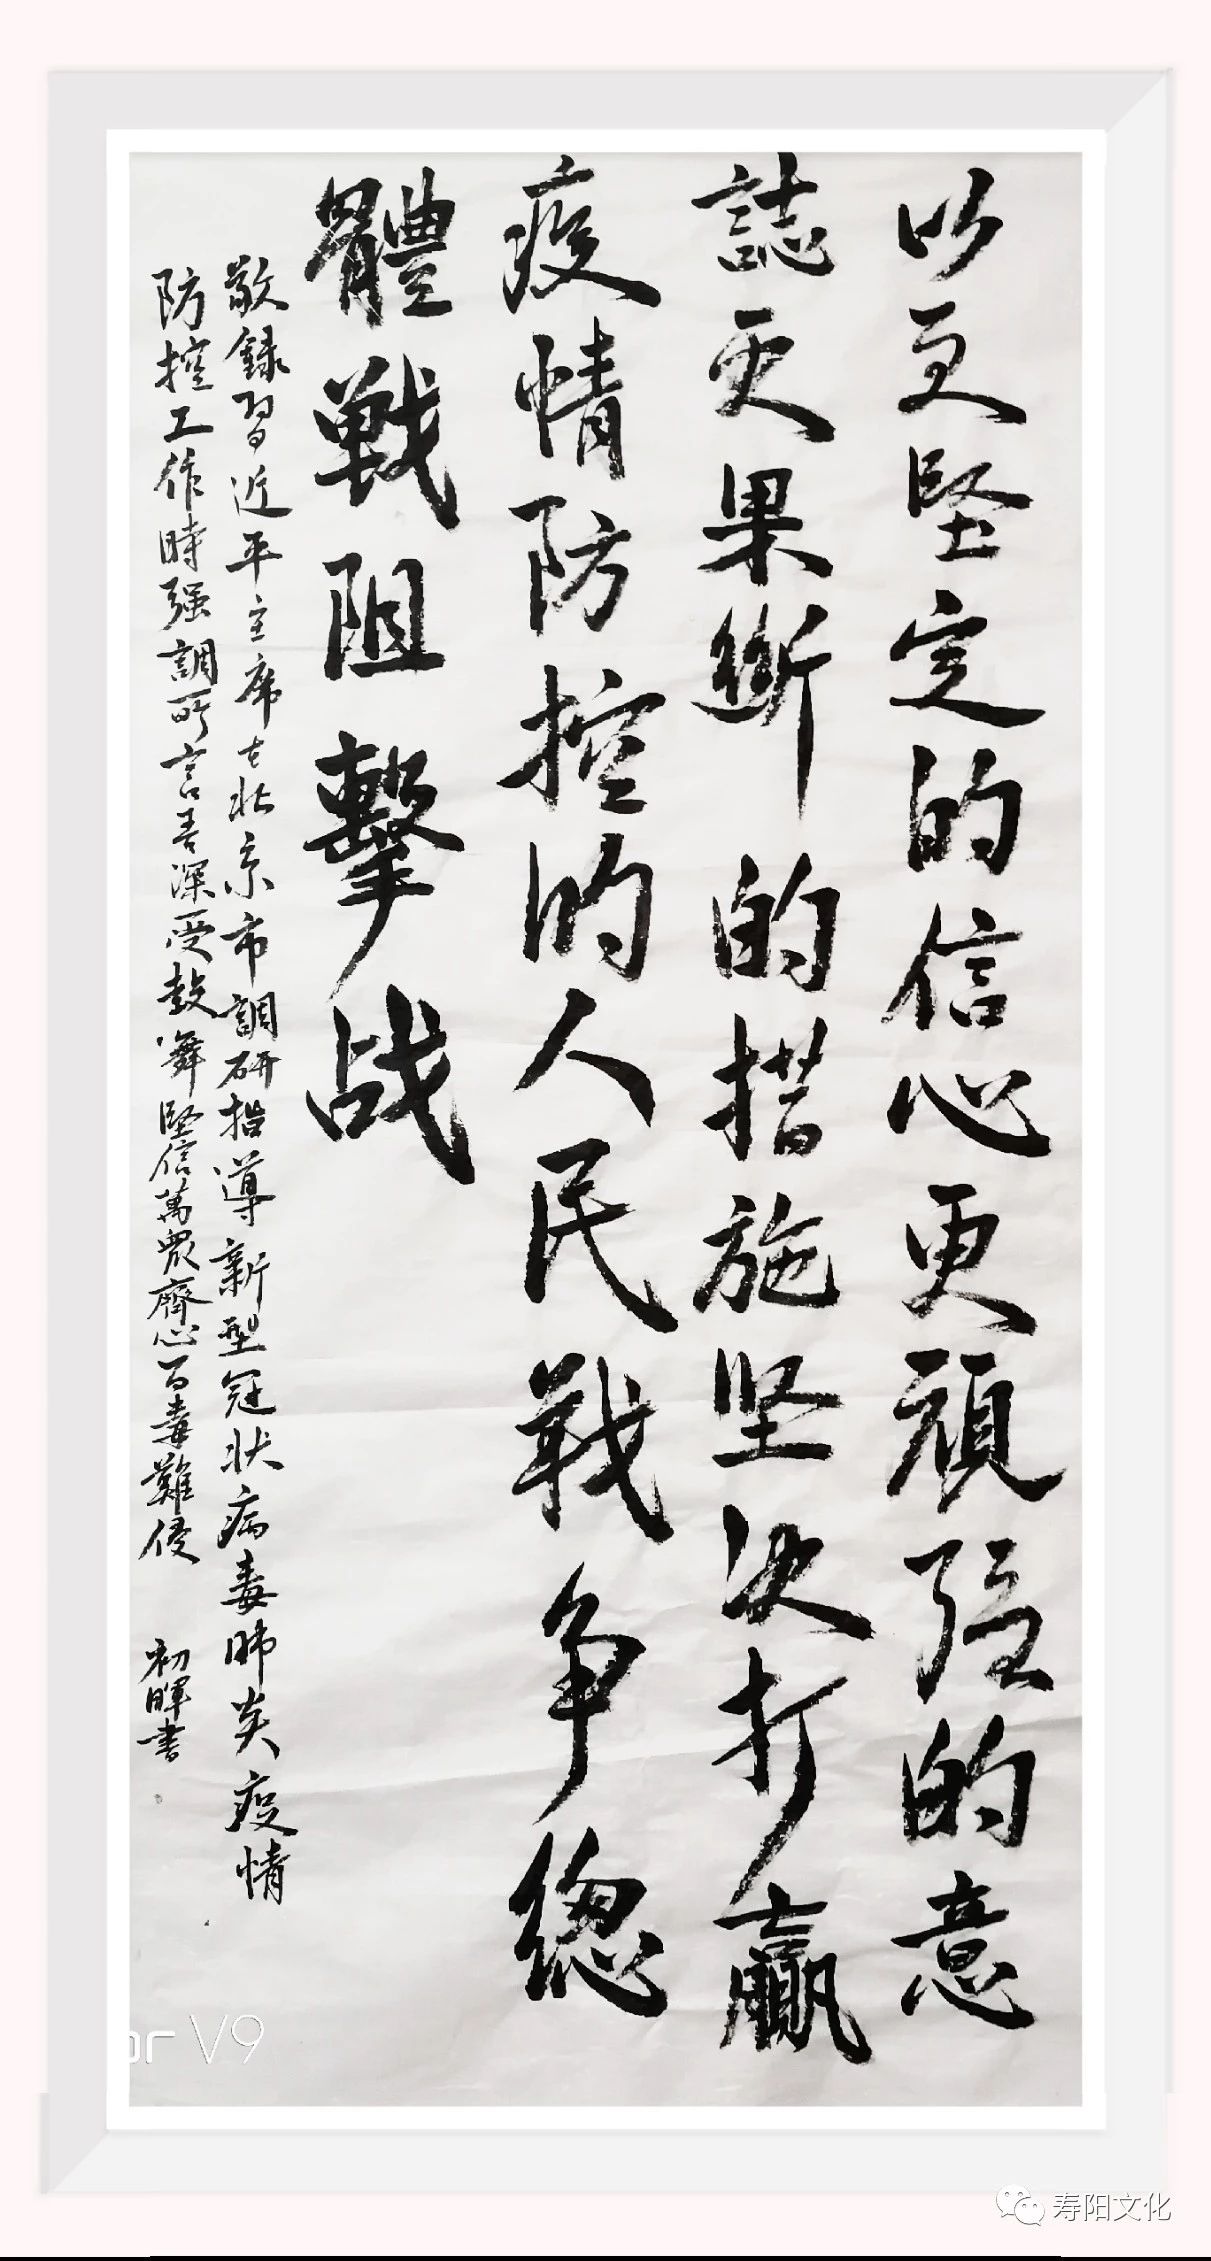 以更堅定的信心更頑强的意
誌更果斷的措施坚决打贏
疫情防控的人民戰争總
體戰阻擊战
敬録習近平主席在北京市調研指導新型冠状病毒肺炎疫情
防控工作時强調所言吾深受鼓舞堅信萬眾齊心百毒難侵
初暉書
or V9
寿阳文化